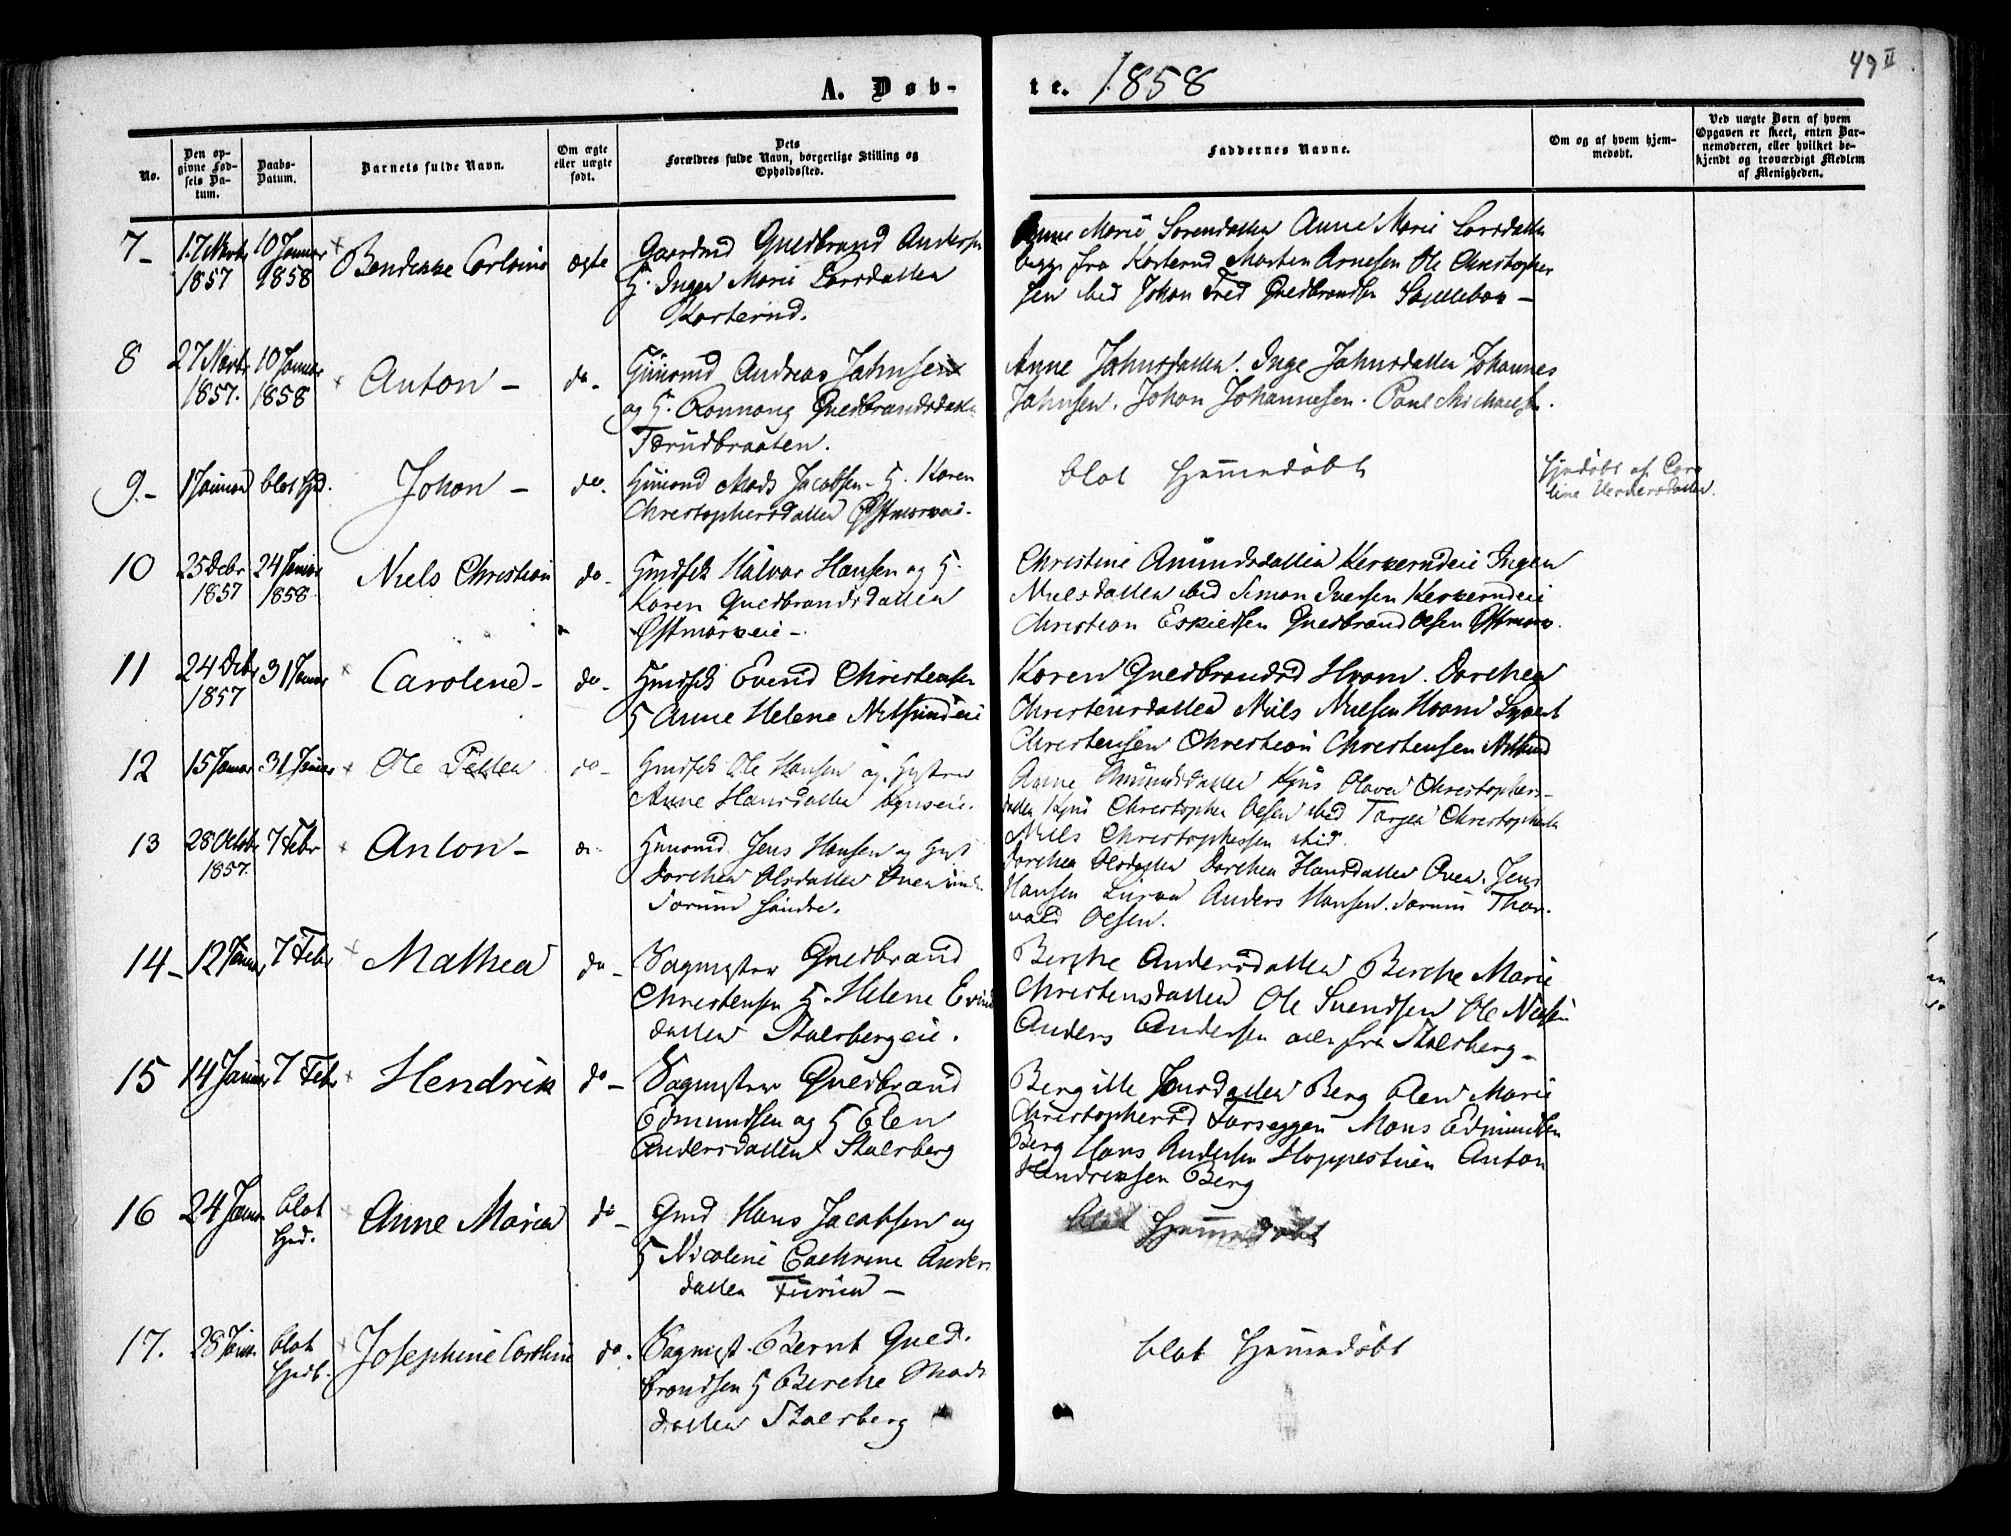 49 II
A. Døb-
te. 1858
No.
Den op-
givne Fød-
sels Da-
tum.
Daabs-
Datum.
Barnets fulde Navn.
Om ægte
eller uægte
født.
Dets
Forældres fulde Navn, borgerlige Stilling og
Opholdssted.
Faddernes Navne.
Om og af hvem hjem-
medøbt.
Ved uægte Børn af hvem
Opgaven er skeet, enten Bar-
nemoderen, eller hvilket be-
kjendt og troværdigt Medlem
af Menigheden.
7-
17 Novbr
1857
10 Januar
1858
ægte
Gaardmd Guldbrand Andersen
H. Inger Marie Larsdatter
Korterud.
Anne Marie Sørendatter Anne Marie Larsdatter
begge fra Korterud Morten Arnesen Ole Christopher
sen ibid Johan Fred Guldbrandsen
8
27 Novbr
1857.
10 Januar
1858
Anton -
do -
Huusmd Andreas Jahnsen
og H. Ronnaug Guldbrandsdatter
Tærudbraaten.
Anne Jahnsdatter. Inge Jahnsdatter Johannes
Jahnsen. Johan Johannesen. Paul Michaelsen.
9.-
1 Januar
blot Hjd.
Johan -
do.
Huusmd Mads Jacobsen H. Karen
Christophersdatter
blot Hjemmedøbt
Hjdøbt af Caro
line
10
25 Debr
1857
24 Januar
1858
Niels Christian
do -
Halvor Hansen og H.
Karen Guldbrandsdatter
Christine Amundsdatter Inger
Nielsdatter ibid Simon Iversen
Christian Guldbrand Olsen
11
24 Debr
1857
31 Januar
Caroline -
do -
Christensen
H Anne Helene
Karen Guldbrandsd Hvam. Dorthea
Christensdatter Niels Nielsen Hvam
Christensen Christian Christensen
12
15 Januar
31 Januar
Ole Petter
do -
Ole Hansen og Hustru
Anne Hansdatter
Anne Amundsdatter Kjus Olava Christophers-
datter Kjus Christopher Olsen ibid
Niels Christophersen ibid.
13
28 Octobr
1857.
7 Febr
Anton -
do -
Huusmd Jens Hansen og Hust
Dorthea Olsdatter
Dorthea Olsdatter Dorthea Hansdatter Jens
Hansen Anders Hansen. Thor-
vald Olsen.
14 -
12 Januar
7 Febr
Mathea
do -
Sagmester Guldbrand
Christensen H. Helene Evind
datter Stalsbergeie.
Berthe Andersdatter Berthe Marie
Christensdatter Ole Svendsen Ole Nielsen
Anders Andersen alle fra Stalsberg -
15
14 Januar
7 Febr
Hendrik
do -
Sagmester Guldbrand
Edmundsen og H Elen
Andersdatter Stalsberg
Bergitte Berg Olen Marie
Christophersd Mons Edmundsen
Berg Hans Andersen Anton
Hendriksen Berg
16
24 Januar
blot
Hjd.
Anne Maria
do -
Gmd Hans Jacobsen og
H Nicoline Cathrine Anders
datter
blot Hjemmedøbt
17.
28 Januar
blot
Hjdb.
Josephine Caroline
do.
Sagmest. Bernt Guld-
brandsen H Berthe Mads
datter Stalsberg
blot Hjemmedøbt